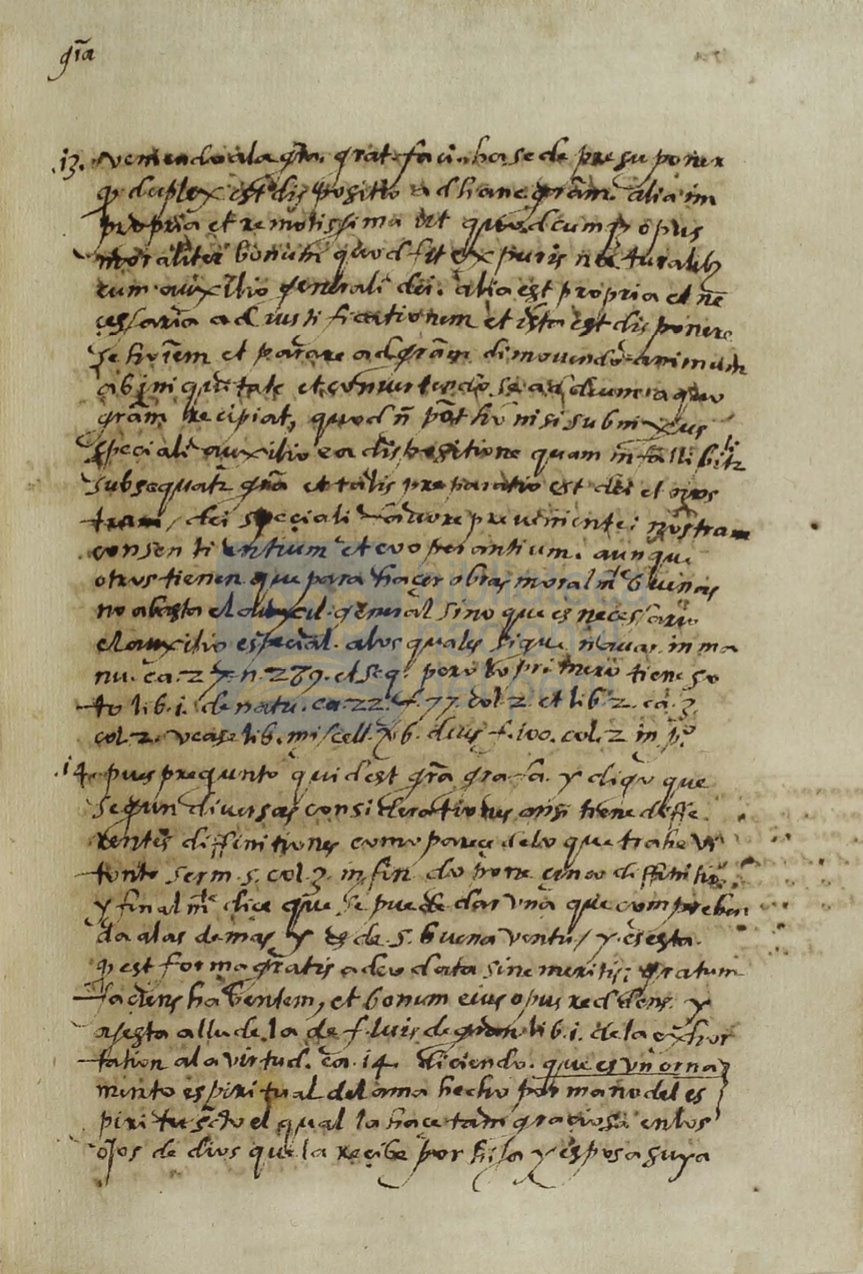 gr̃a
.13. veniendo a la gr̃a. grat. faci. ha se de presuponer
q̃ duplex est dispositio ad hanc gr̃am. alia im
propria et remotissima vt quodcumq̃ opus
moraliter bonum quod fit ex puris naturalib
cum auxilio generali dei. alia est propria et ne
cessaria ad iustificationem et ista est disponere
se hoı̃em et parare ad gr̃am dimouendo animum
ab iniquitate et conuertendo se ad deum a quo
gr̃am recipiat, quod ñ põt hõ nisi submixus
speciali auxilio ea dispositione quam infallibilitr
subsequatr gr̃a et talis preparatio est dei et nos
tram / dei speciali fauore preuenientei nostram
consentientium et cooperantium. aunque
otros tienen que para haçer obras moralmte buenas
no abasta el auxil. general sino que es necessario
el auxilio especial. a los quales sigue nauar. in ma
nu. ca. 27 n. 279. et seq. pero lo primero tiene so
to lib. i. de natu. ca. 22. f. 77. col. 2. et lib. 2. ca. 3
col. 2. vease lib. miscell. x6. deus f. 100. col. 2 in p.o
.14. pues pregunto quid est gr̃a gra. fa. y digo que
segun diuersas considerationes ansi tiene diffe
rentes diffinitiones como pareçe de lo que trahe vi
tonto serm. s. col. 3. in fin do pone cinco diffinitio.
y finalmte dice que se puede dar vna que comprehen
da a las demas y es de s. buenaventu / y es esta.
q̃ est forma gratis a deo data sine meritis; gratum
faciens habentem, et bonum eius opus reddens. y
a esta allude la de f. luis de gran lib. i. de la exhor
tation a la virtud. ca. 14. diciendo. que es vn orna
mento espiritual del anima hecho por mano del es
piritu scto el qual la hace tam graciosa en los
ojos de dios que la reçibe por hija y esposa suya